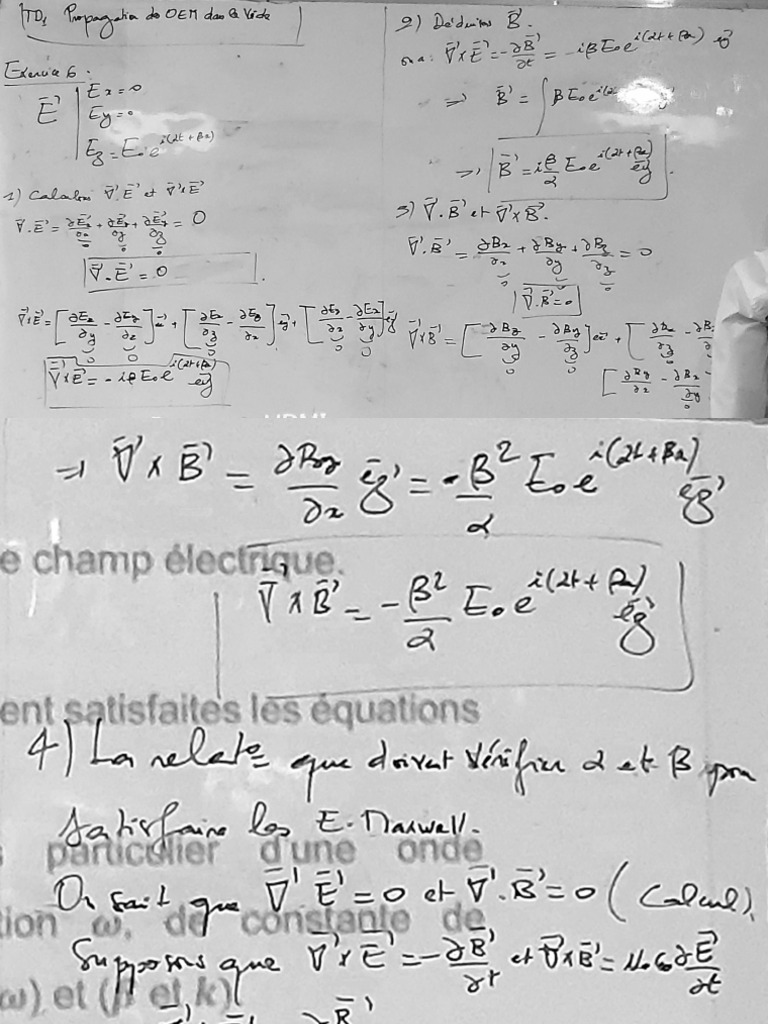 TD1 Propagation de OEM dans le Vide
Exercice 6 :
E⃗ | Ex = 0
Ey = 0
Ez = E₀ e^{i(αt + βx)}
1) Calculons ∇⃗.E⃗ et ∇⃗×E⃗
∇⃗.E⃗ = ∂Ex/∂x + ∂Ey/∂y + ∂Ez/∂z = 0
∇⃗.E⃗ = 0
∇⃗×E⃗ = [∂Ez/∂y - ∂Ey/∂z] e⃗x + [∂Ex/∂z - ∂Ez/∂x] e⃗y + [∂Ey/∂x - ∂Ex/∂y] e⃗z
∇⃗×E⃗ = -iβ E₀ e^{i(αt+βx)} e⃗y
2) Déduisons B⃗.
on a : ∇⃗×E⃗ = -∂B⃗/∂t = -iβ E₀ e^{i(αt + βx)} e⃗y
⇒ B⃗ = ∫ β E₀ e^{i(αt
⇒ B⃗ = i β/α E₀ e^{i(αt+βx)} e⃗y.
3) ∇⃗.B⃗ et ∇⃗×B⃗.
∇⃗.B⃗ = ∂Bx/∂x + ∂By/∂y + ∂Bz/∂z = 0
∇⃗.B⃗ = 0
∇⃗×B⃗ = [∂Bz/∂y - ∂By/∂z] e⃗x + [∂Bx/∂z - ∂B
[∂By/∂x - ∂Bx/∂y
⇒ ∇⃗ × B⃗ = ∂By/∂x e⃗z = -β²/α E₀ e^{i(αt+βx)} e⃗z
e champ électrique.
∇⃗ ∧ B⃗ = -β²/α E₀ e^{i(αt + βx)} e⃗z
ent satisfaites les équations
4) La relat° que doivent vérifier α et β pour
satisfaire les E. Maxwell.
particulier d'une onde
On sait que ∇⃗ E⃗ = 0 et ∇⃗.B⃗ = 0 (Calcul).
tion ω, de constante de
Supposons que ∇⃗×E⃗ = -∂B⃗/∂t et ∇⃗×B⃗ = μ₀ε₀ ∂E⃗/∂t
ω) et (β et k)
∂B⃗